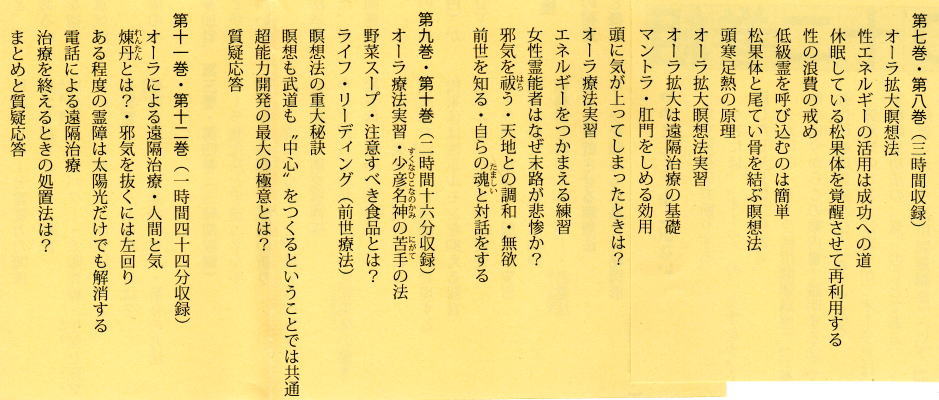 第七巻・第八巻(三時間収録)
オーラ拡大瞑想法
性エネルギーの活用は成功への道
休眠している松果体を覚醒させて再利用する
性の浪費の戒め
低級霊を呼び込むのは簡単
松果体と尾てい骨を結ぶ瞑想法
頭寒足熱の原理
オーラ拡大瞑想法実習
オーラ拡大は遠隔治療の基礎
マントラ・肛門をしめる効用
頭に気が上ってしまったときは?
オーラ療法実習
エネルギーをつかまえる練習
女性霊能者はなぜ末路が悲惨か?
邪気を祓う・天地との調和・無欲
前世を知る・自らの魂と対話をする
第九巻・第十巻(二時間十六分収録)
オーラ療法実習・少彦名神の苦手の法
野菜スープ・注意すべき食品とは?
ライフ・リーディング(前世療法)
瞑想法の重大秘訣
瞑想も武道も〝中心〟をつくるということでは共通
超能力開発の最大の極意とは?
質疑応答
第十一巻・第十二巻(一時間四十四分収録)
オーラによる遠隔治療・人間と気
煉丹とは?・邪気を抜くには左回り
ある程度の霊障は太陽光だけでも解消する
電話による遠隔治療
治療を終えるときの処置法は?
まとめと質疑応答